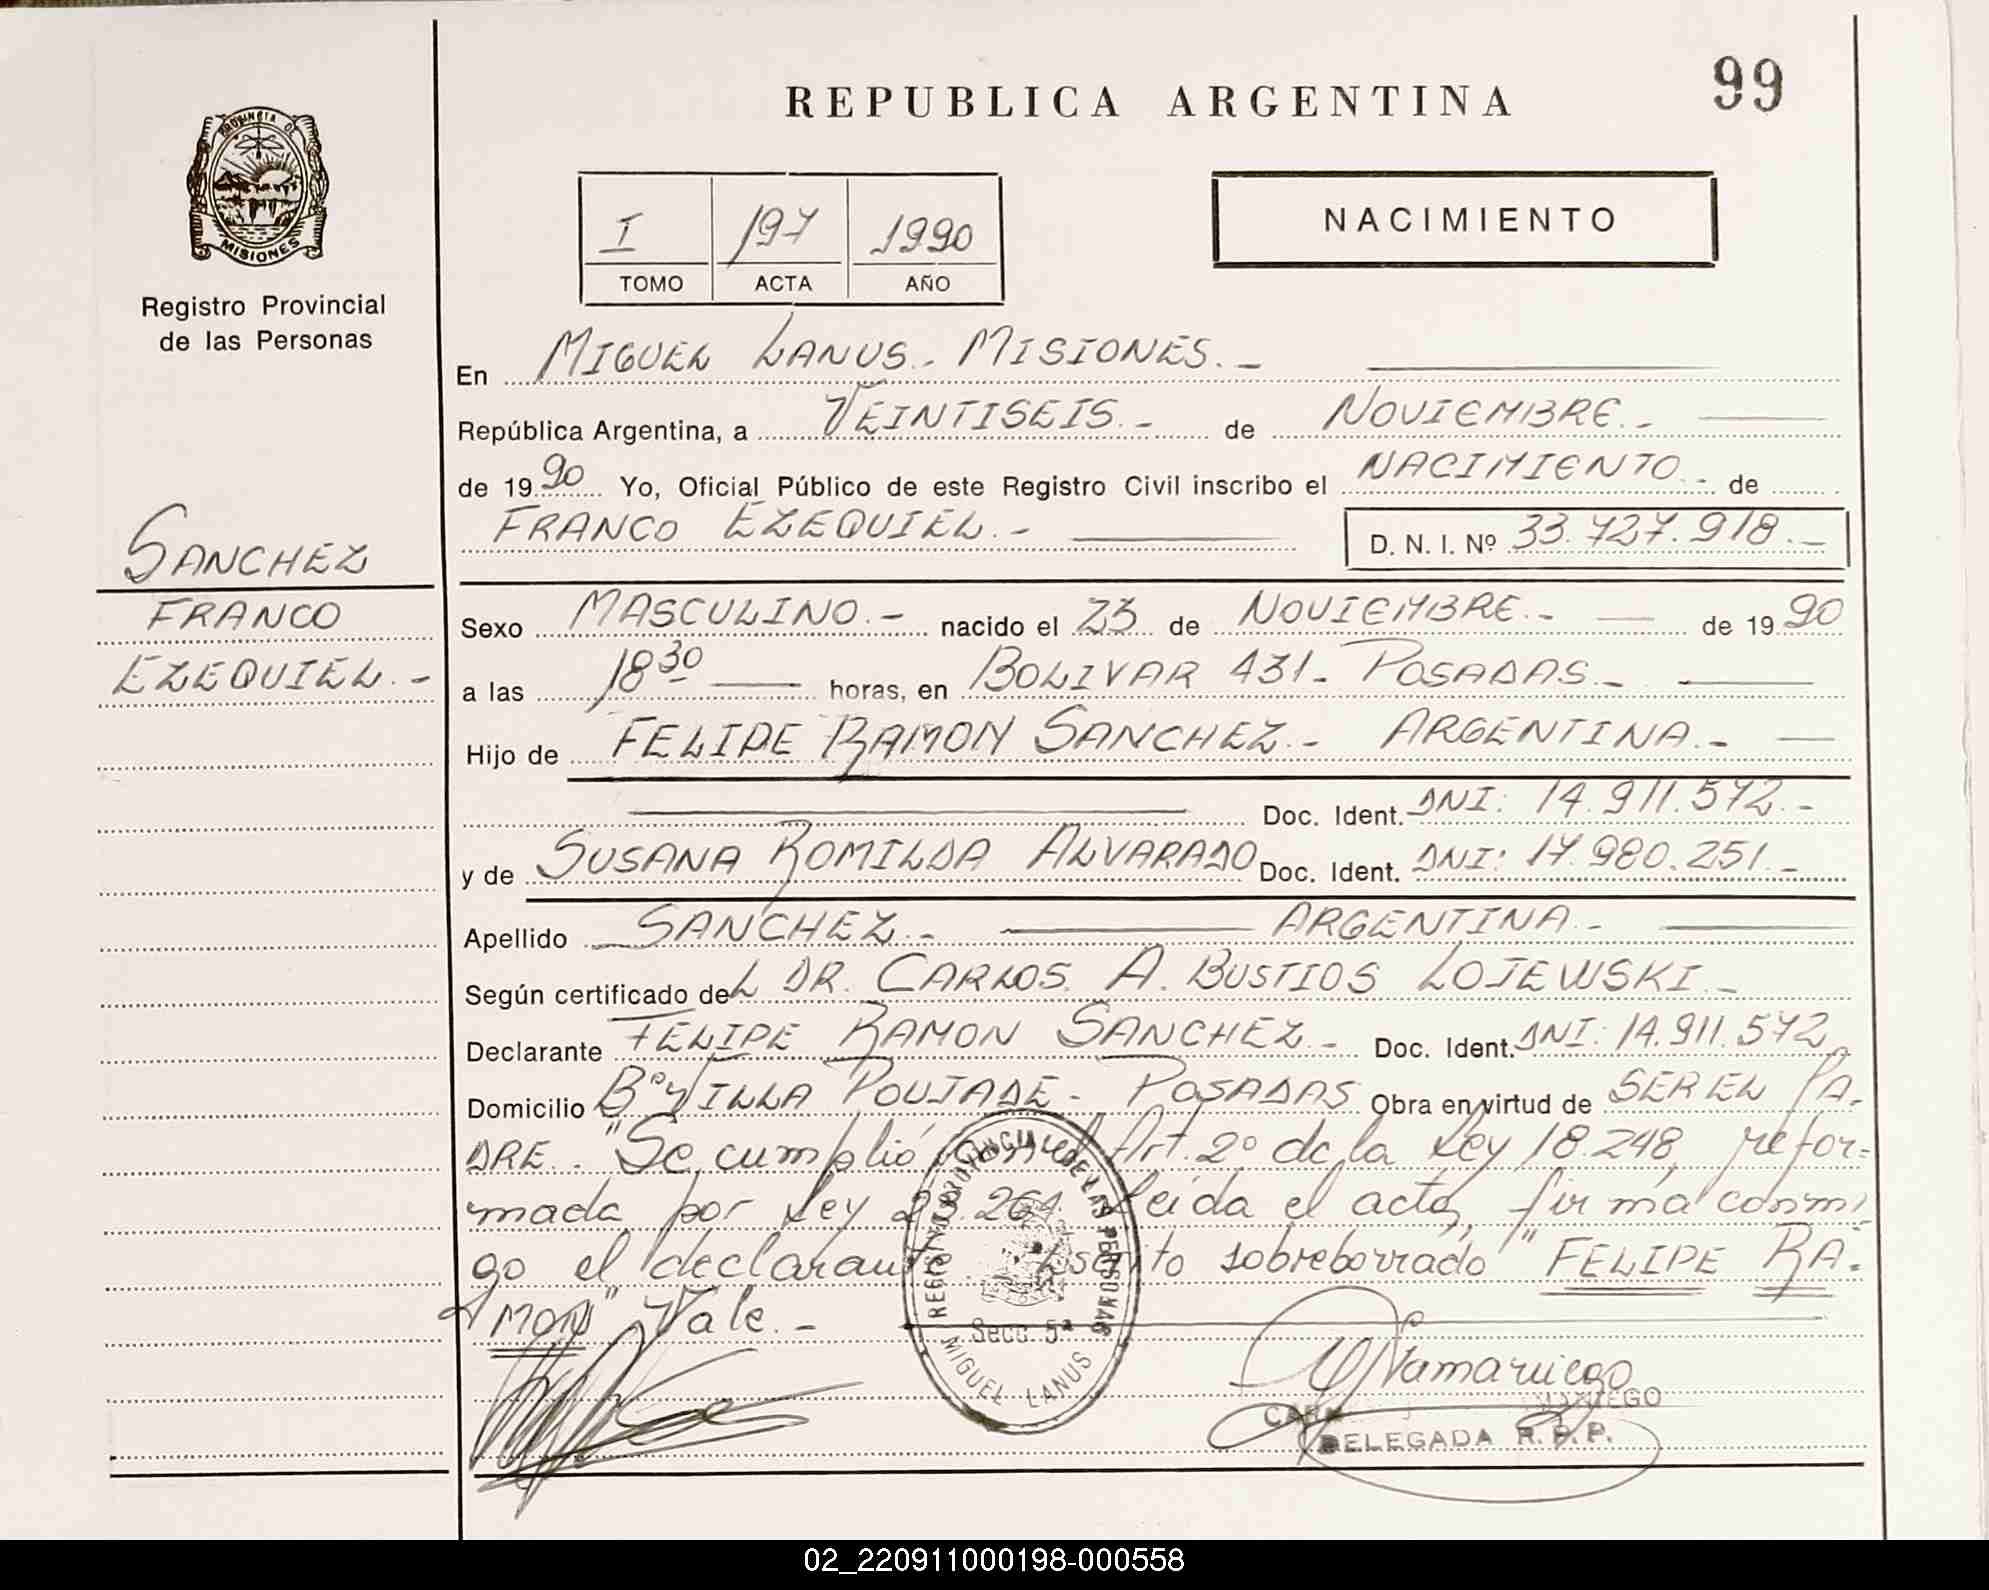 REPUBLICA ARGENTINA
99
PROVINCIA DE
MISIONES
Registro Provincial
de las Personas
I 197 1990
TOMO ACTA AÑO
NACIMIENTO
En MIGUEL LANUS.- MISIONES.-
República Argentina, a VEINTISEIS.- de NOVIEMBRE.-
de 1990 Yo, Oficial Público de este Registro Civil inscribo el NACIMIENTO.- de
FRANCO EZEQUIEL.- D. N. I. Nº 33.727.918.-
SANCHEZ
FRANCO
EZEQUIEL.-
Sexo MASCULINO.- nacido el 23 de NOVIEMBRE.- de 1990
a las 18 30 horas, en BOLIVAR 431- POSADAS.-
Hijo de FELIPE RAMON SANCHEZ.- ARGENTINA.-
Doc. Ident. DNI: 14.911.572.-
y de SUSANA ROMILDA ALVARADO Doc. Ident. DNI: 17.980.251.-
Apellido SANCHEZ.- ARGENTINA.-
Según certificado del DR. CARLOS A. BUSTIOS LOJEWSKI.-
Declarante FELIPE RAMON SANCHEZ.- Doc. Ident. DNI: 14.911.572
Domicilio Bº VILLA POUJADE- POSADAS Obra en virtud de SER EL PA-
DRE. "Se cumplió con el Art. 2º de la Ley 18.248, refor=
mada por Ley 23.264 Leida el acta, firma conmi
go el declarante. Escrito sobreborrado "FELIPE RA-
MON" Vale.-
REGISTRO PROVINCIAL DE LAS PERSONAS
Secc. 5ª
MIGUEL LANUS
DELEGADA R.P.P.
02_220911000198-000558